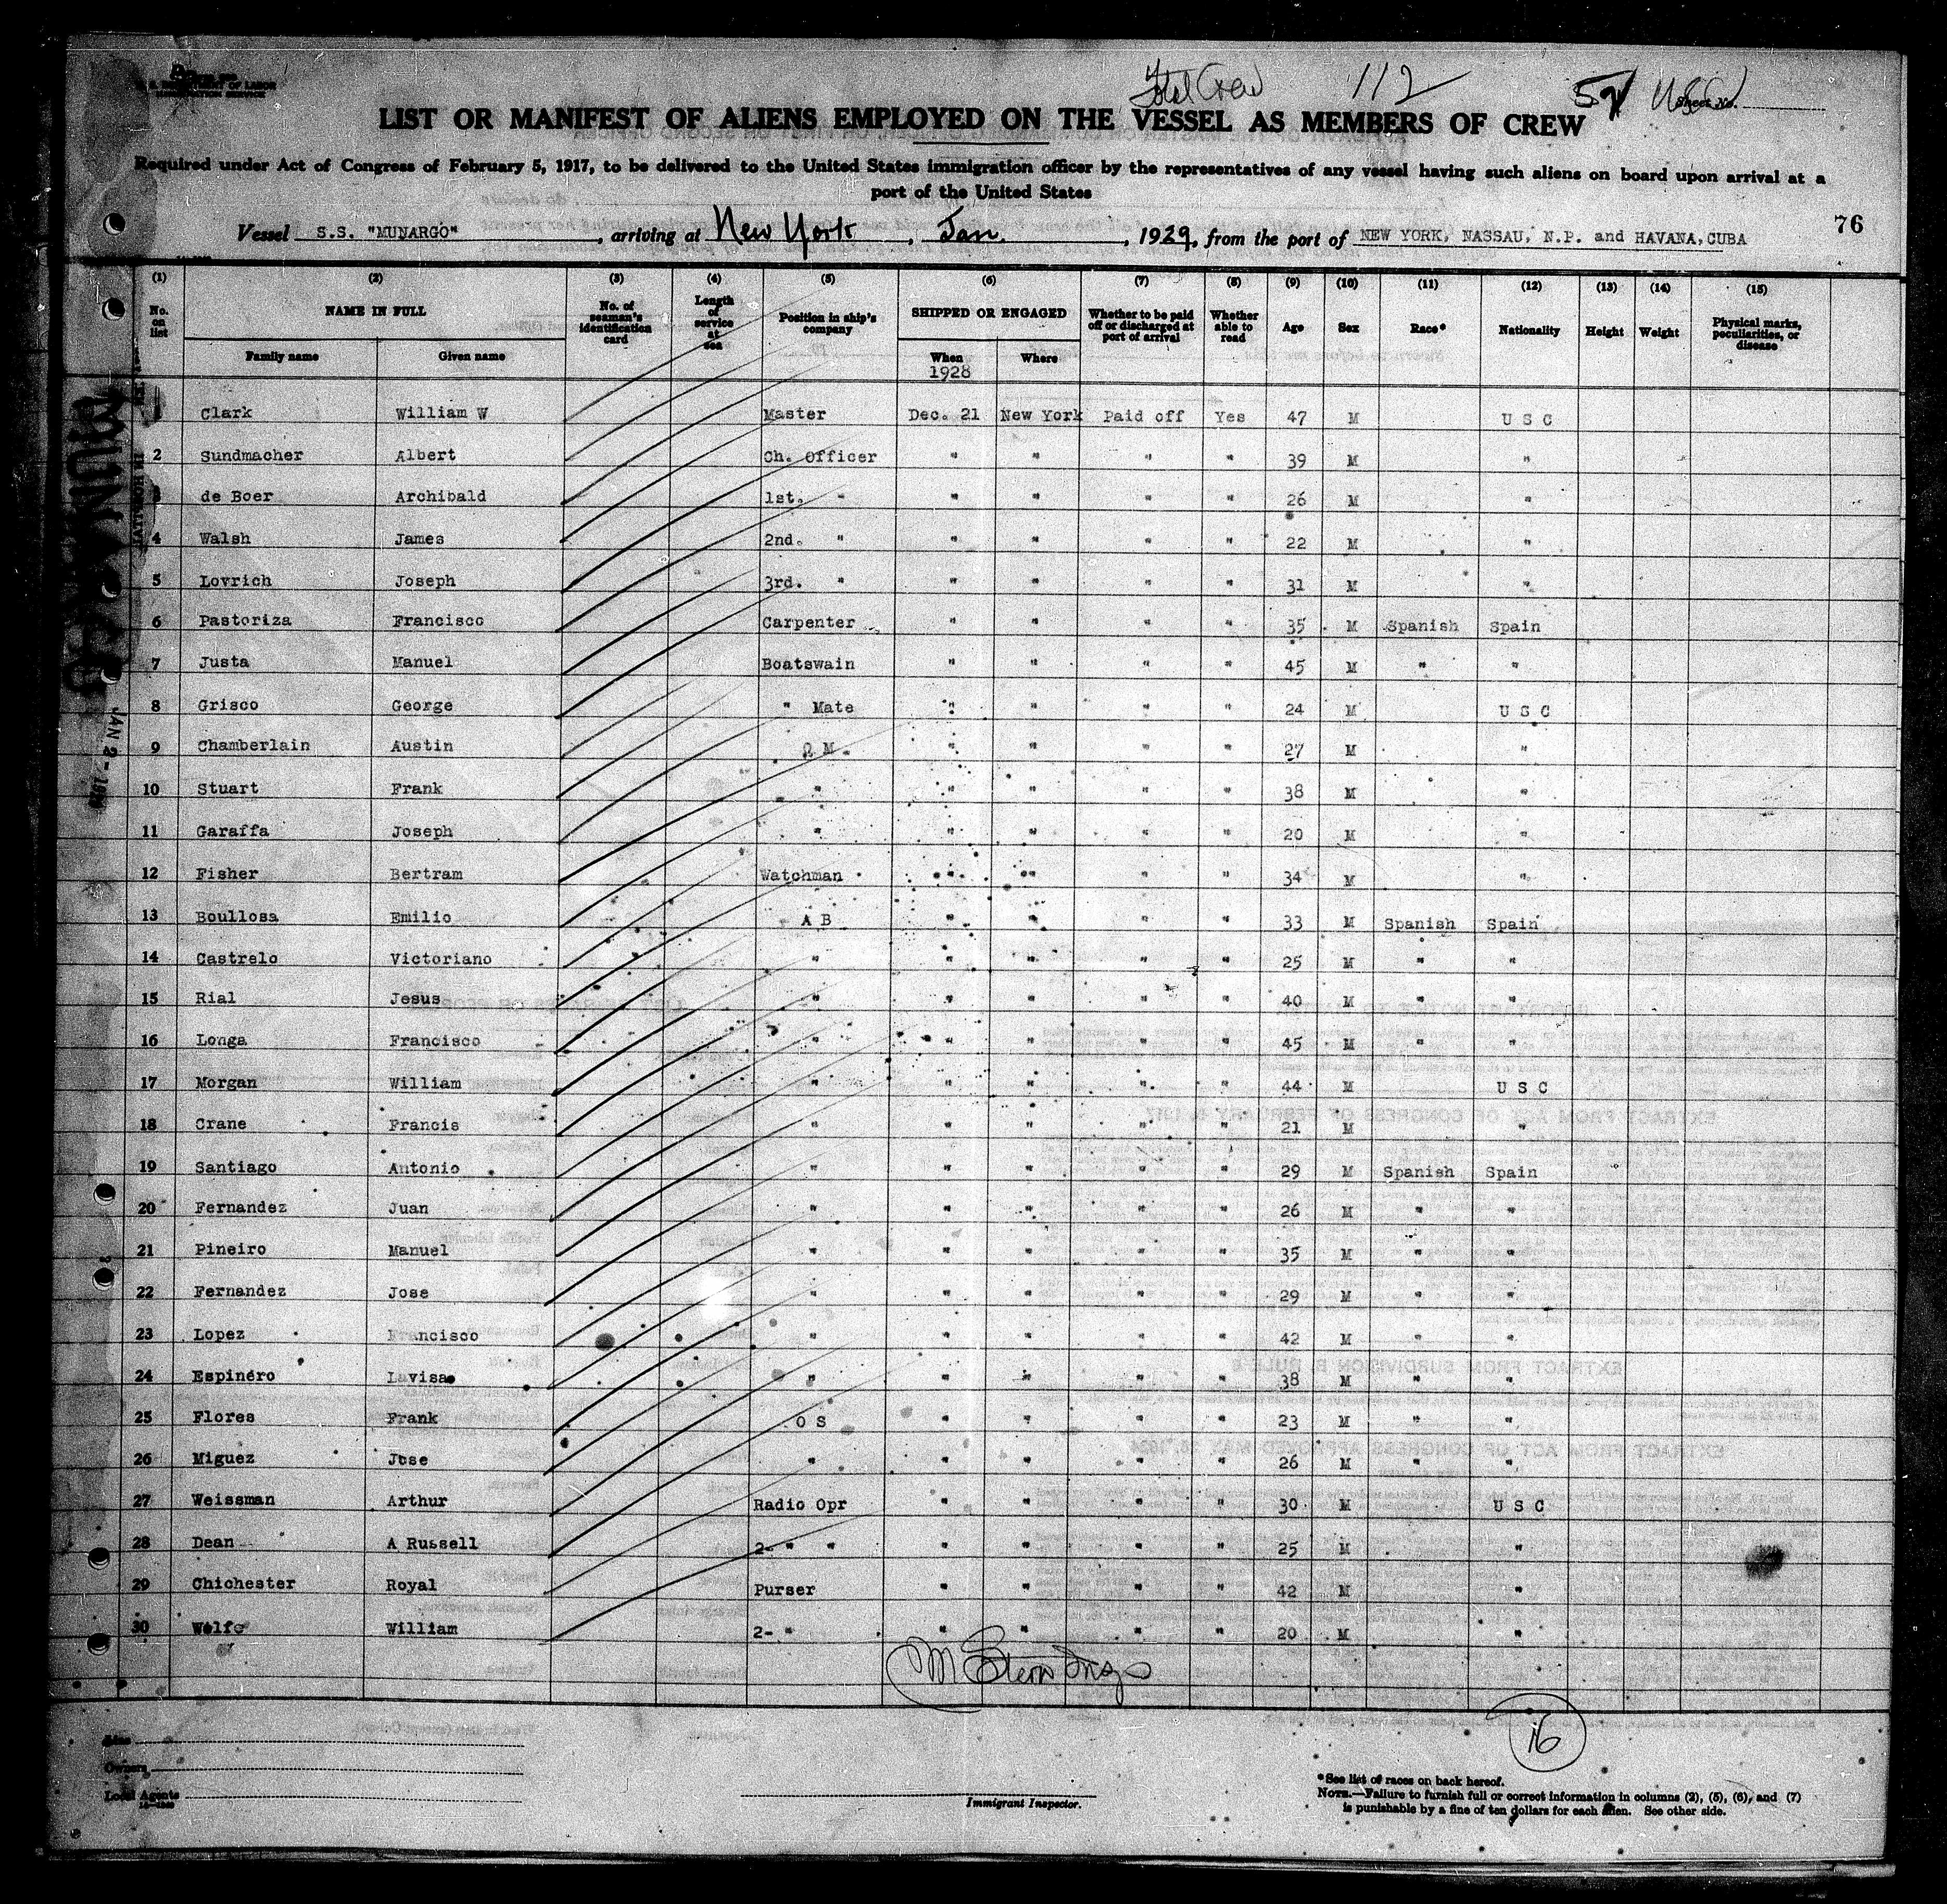 U. S. DEPARTMENT OF LABOR
IMMIGRATION SERVICE
Total Crew 112 59 USC
Sheet No.
LIST OR MANIFEST OF ALIENS EMPLOYED ON THE VESSEL AS MEMBERS OF CREW
Required under Act of Congress of February 5, 1917, to be delivered to the United States immigration officer by the representatives of any vessel having such aliens on board upon arrival at a
port of the United States
76
Vessel S.S. "MUNARGO", arriving at New York, Jan., 1929, from the port of NEW YORK, NASSAU, N.P. and HAVANA, CUBA
(1) (2) (3) (4) (5) (6) (7) (8) (9) (10) (11) (12) (13) (14) (15)
No. on list NAME IN FULL No. of seaman's identification card Length of service at sea Position in ship's company SHIPPED OR ENGAGED Whether to be paid off or discharged at port of arrival Whether able to read Age Sex Race* Nationality Height Weight Physical marks, peculiarities, or disease
Family name Given name When Where
1928
1 Clark William W Master Dec. 21 New York Paid off Yes 47 M U S C
2 Sundmacher Albert Ch. Officer " " " " 39 M "
3 de Boer Archibald 1st. " " " " " 26 M "
4 Walsh James 2nd. " " " " " 22 M "
5 Lovrich Joseph 3rd. " " " " " 31 M "
6 Pastoriza Francisco Carpenter " " " " 35 M Spanish Spain
7 Justa Manuel Boatswain " " " " 45 M " "
8 Grisco George " Mate " " " " 24 M U S C
9 Chamberlain Austin Q M " " " " 27 M "
10 Stuart Frank " " " " " 38 M "
11 Garaffa Joseph " " " " " 20 M "
12 Fisher Bertram Watchman " " " " 34 M "
13 Boullosa Emilio A B " " " " 33 M Spanish Spain
14 Castrelo Victoriano " " " " " 25 M " "
15 Rial Jesus " " " " " 40 M " "
16 Longa Francisco " " " " " 45 M " "
17 Morgan William " " " " " 44 M U S C
18 Crane Francis " " " " " 21 M "
19 Santiago Antonio " " " " " 29 M Spanish Spain
20 Fernandez Juan " " " " " 26 M " "
21 Pineiro Manuel " " " " " 35 M " "
22 Fernandez Jose " " " " " 29 M " "
23 Lopez Francisco " " " " " 42 M " "
24 Espinero Lavisa " " " " " 38 M " "
25 Flores Frank O S " " " " 23 M " "
26 Miguez Jose " " " " " 26 M " "
27 Weissman Arthur Radio Opr " " " " 30 M U S C
28 Dean A Russell 2- " " " " " " 25 M "
29 Chichester Royal Purser " " " " 42 M "
30 Wolfe William 2- " " " " " 20 M "
JAN 2-
16
Owners
Local Agents
Immigrant Inspector.
*See list of races on back hereof.
NOTE.—Failure to furnish full or correct information in columns (2), (5), (6), and (7)
is punishable by a fine of ten dollars for each alien. See other side.